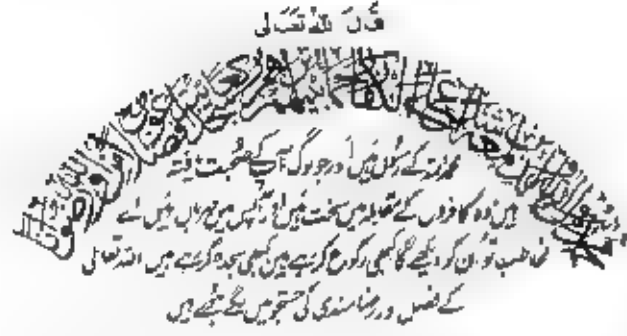 قال اللہ تعالیٰ
محمد رسول الله والذين معه اشداء على الكفار رحماء بينهم تراهم ركعا سجدا يبتغون فضلا من الله ورضوانا
محمد اللہ کے رسول ہیں اور جو لوگ آپ کے صحبت یافتہ
ہیں وہ کافروں کے مقابلہ میں سخت ہیں اور آپس میں مہربان ہیں اے
مخاطب تو ان کو دیکھے گا کبھی رکوع کر رہے ہیں کبھی سجدہ کر رہے ہیں اللہ تعالیٰ
کے فضل اور رضامندی کی جستجو میں لگے ہوئے ہیں